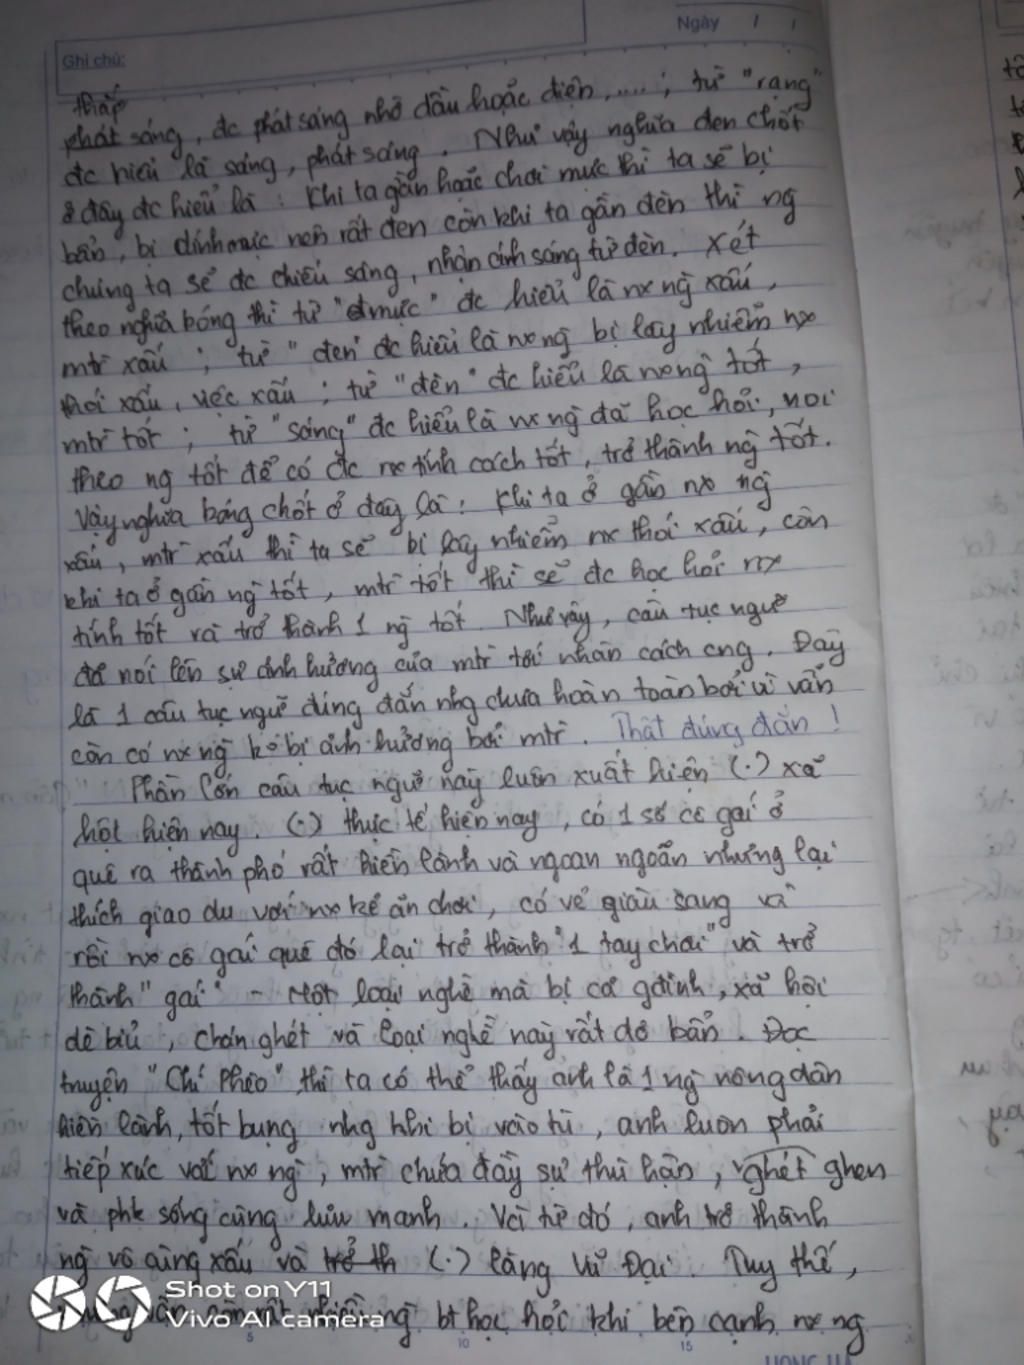 Ngày / /
Ghi chú:
thắp
phát sáng, đc phát sáng nhờ dầu hoặc điện,....; từ "rạng"
đc hiểu là sáng, phát sáng. Như vậy nghĩa đen chốt
ở đây đc hiểu là: Khi ta gần hoặc chơi mực thì ta sẽ bị
bẩn, bị dính mực nên rất đen còn khi ta gần đèn thì ng
chúng ta sẽ đc chiếu sáng, nhận ánh sáng từ đèn. Xét
theo nghĩa bóng thì từ "mực" đc hiểu là nx ng xấu,
mtr xấu; từ "đen" đc hiểu là nx ng bị lây nhiễm nx
thói xấu, việc xấu; từ "đèn" đc hiểu là nx ng tốt,
mtr tốt; từ "sáng" đc hiểu là nx ng đã học hỏi, noi
theo ng tốt để có đc nx tính cách tốt, trở thành ng tốt.
Vậy nghĩa bóng chốt ở đây là: Khi ta ở gần nx ng
xấu, mtr xấu thì ta sẽ bị lây nhiễm nx thói xấu, còn
khi ta ở gần ng tốt, mtr tốt thì sẽ đc học hỏi nx
tính tốt và trở thành 1 ng tốt. Như vậy, câu tục ngữ
đã nói lên sự ảnh hưởng của mtr tới nhân cách cng. Đây
là 1 câu tục ngữ đúng đắn nhg chưa hoàn toàn bởi vì vẫn
còn có nx ng ko bị ảnh hưởng bởi mtr. Thật đúng đắn!
Phần lớn câu tục ngữ này luôn xuất hiện (.) xã
hội hiện nay. (.) thực tế hiện nay, có 1 số cô gái ở
quê ra thành phố rất hiền lành và ngoan ngoãn nhưng lại
thích giao du với nx kẻ ăn chơi, có vẻ giàu sang và
rồi nx cô gái quê đó lại trở thành "1 tay chơi" và trở
thành "gái" - Một loại nghề mà bị cả gđình, xã hội
dè bỉu, chán ghét và loại nghề này rất dơ bẩn. Đọc
truyện "Chí Phèo" thì ta có thể thấy anh là 1 ng nông dân
hiền lành, tốt bụng nhg khi bị vào tù, anh luôn phải
tiếp xúc với nx ng, mtr chứa đầy sự thù hận, ghét ghen
và phk sống cùng lưu manh. Và từ đó, anh trở thành
ng vô cùng xấu và trở th (.) làng Vũ Đại. Tuy thế,
ng bt học hỏi khi bên cạnh nx ng
Shot on Y11
Vivo AI camera
5 10 15